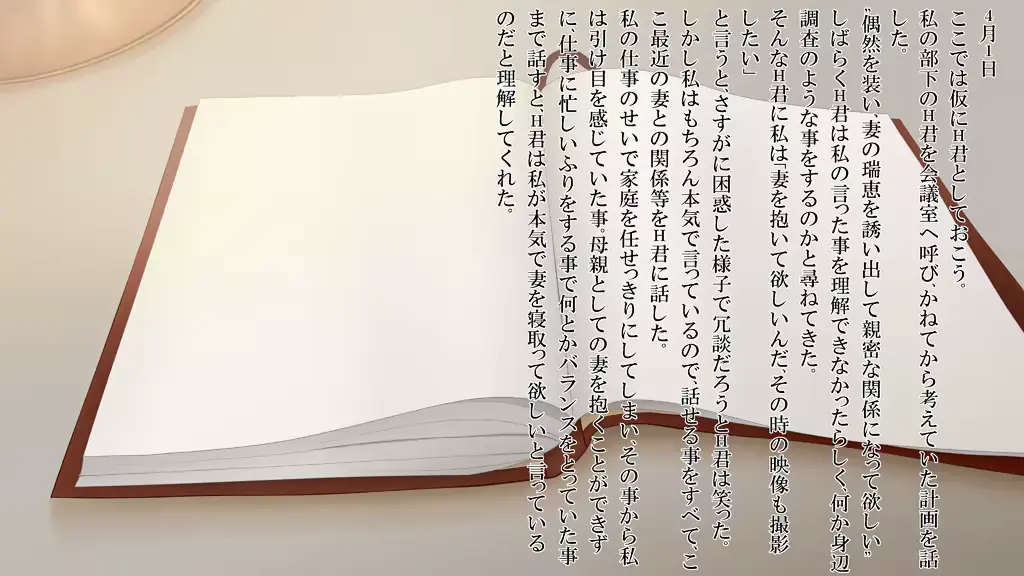 4月1日
ここでは仮にH君としておこう。
私の部下のH君を会議室へ呼び、かねてから考えていた計画を話
した。
"偶然を装い、妻の瑞恵を誘い出して親密な関係になって欲しい"
しばらくH君は私の言った事を理解できなかったらしく何か身辺
調査のような事をするのかと尋ねてきた。
そんなH君に私は「妻を抱いて欲しいんだ、その時の映像も撮影
したい」
と言うと、さすがに困惑した様子で冗談だろうとH君は笑った。
しかし私はもちろん本気で言っているので、話せる事をすべて、こ
こ最近の妻との関係等をH君に話した。
私の仕事のせいで家庭を任せっきりにしてしまい、その事から私
は引け目を感じていた事。母親としての妻を抱くことができず
に、仕事に忙しいふりをする事で何とかバランスをとっていた事
まで話すと、H君は私が本気で妻を寝取って欲しいと言っている
のだと理解してくれた。